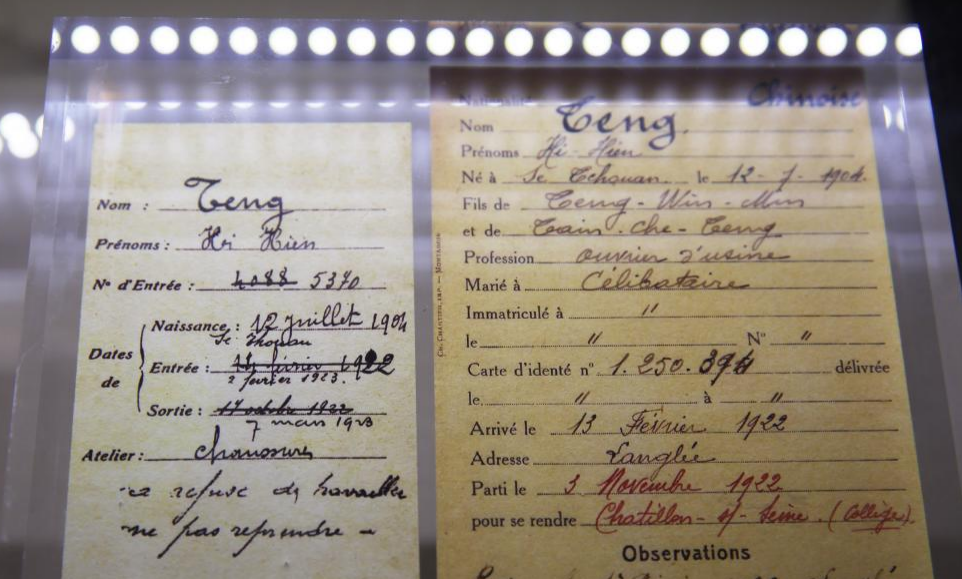 Nom : Teng
Prénoms : Hi Hien
N° d'Entrée : 4088 5370
Dates de
Naissance : 12 juillet 1904
Se Thouan
Entrée : 14 février 1922
2 fevrier 1923.
Sortie : 17 octobre 1922
7 mars 1923
Atelier : Chaussures
a refusé de travailler
ne pas reprendre -
Nationalité Chinoise
Nom Teng.
Prénoms Hi-Hien
Né à Se Tchouan le 12-7-1904.
Fils de Teng-Win-Min
et de Tain-Che-Teng
Profession ouvrier d'usine
Marié à Célibataire
Immatriculé à "
le " N° "
Carte d'identé n° 1.250.394 délivrée
le " à "
Arrivé le 13 Février 1922
Adresse Langlée
Parti le 3 Novembre 1922
pour se rendre Chatillon-s/-Seine. (Collège).
Observations